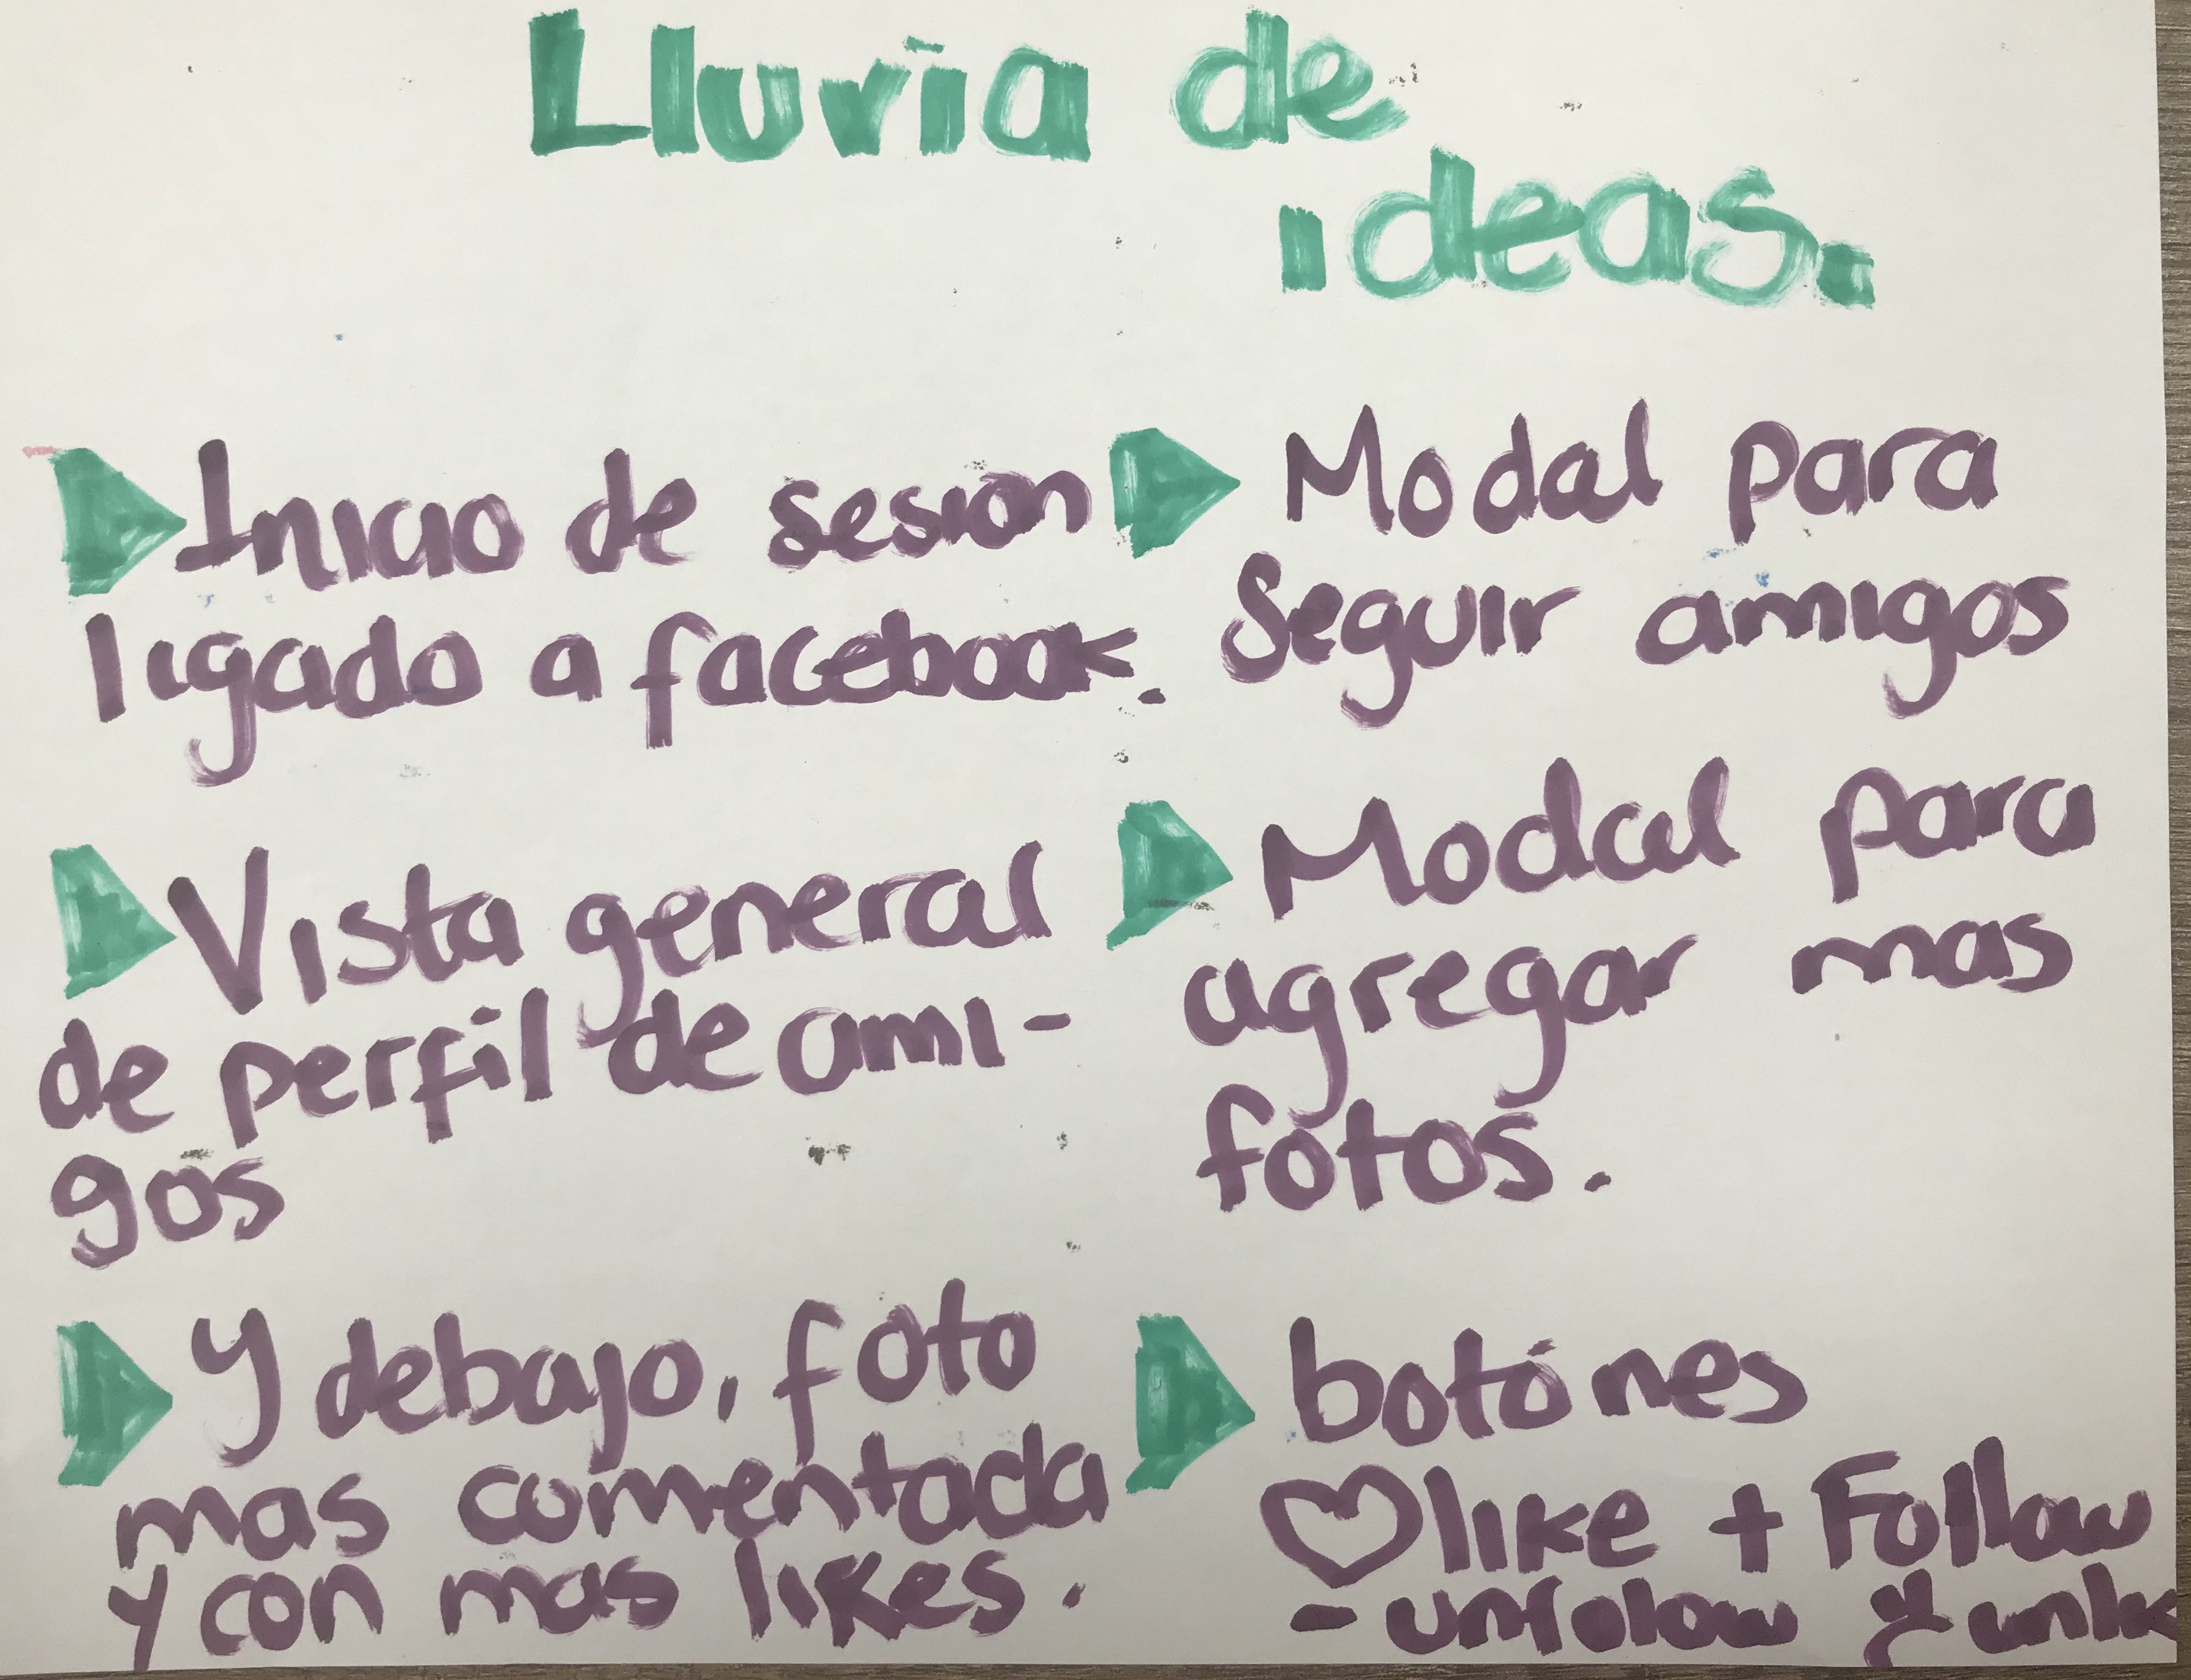 Lluvia de
ideas.
Inicio de sesion
ligado a facebook.
Vista general
de perfil de ami-
gos
Y debajo, foto
mas comentada
y con mas likes.
Modal para
Seguir amigos
Modal para
agregar mas
fotos.
botónes
♡ like + Follow
- unfolow y unlk